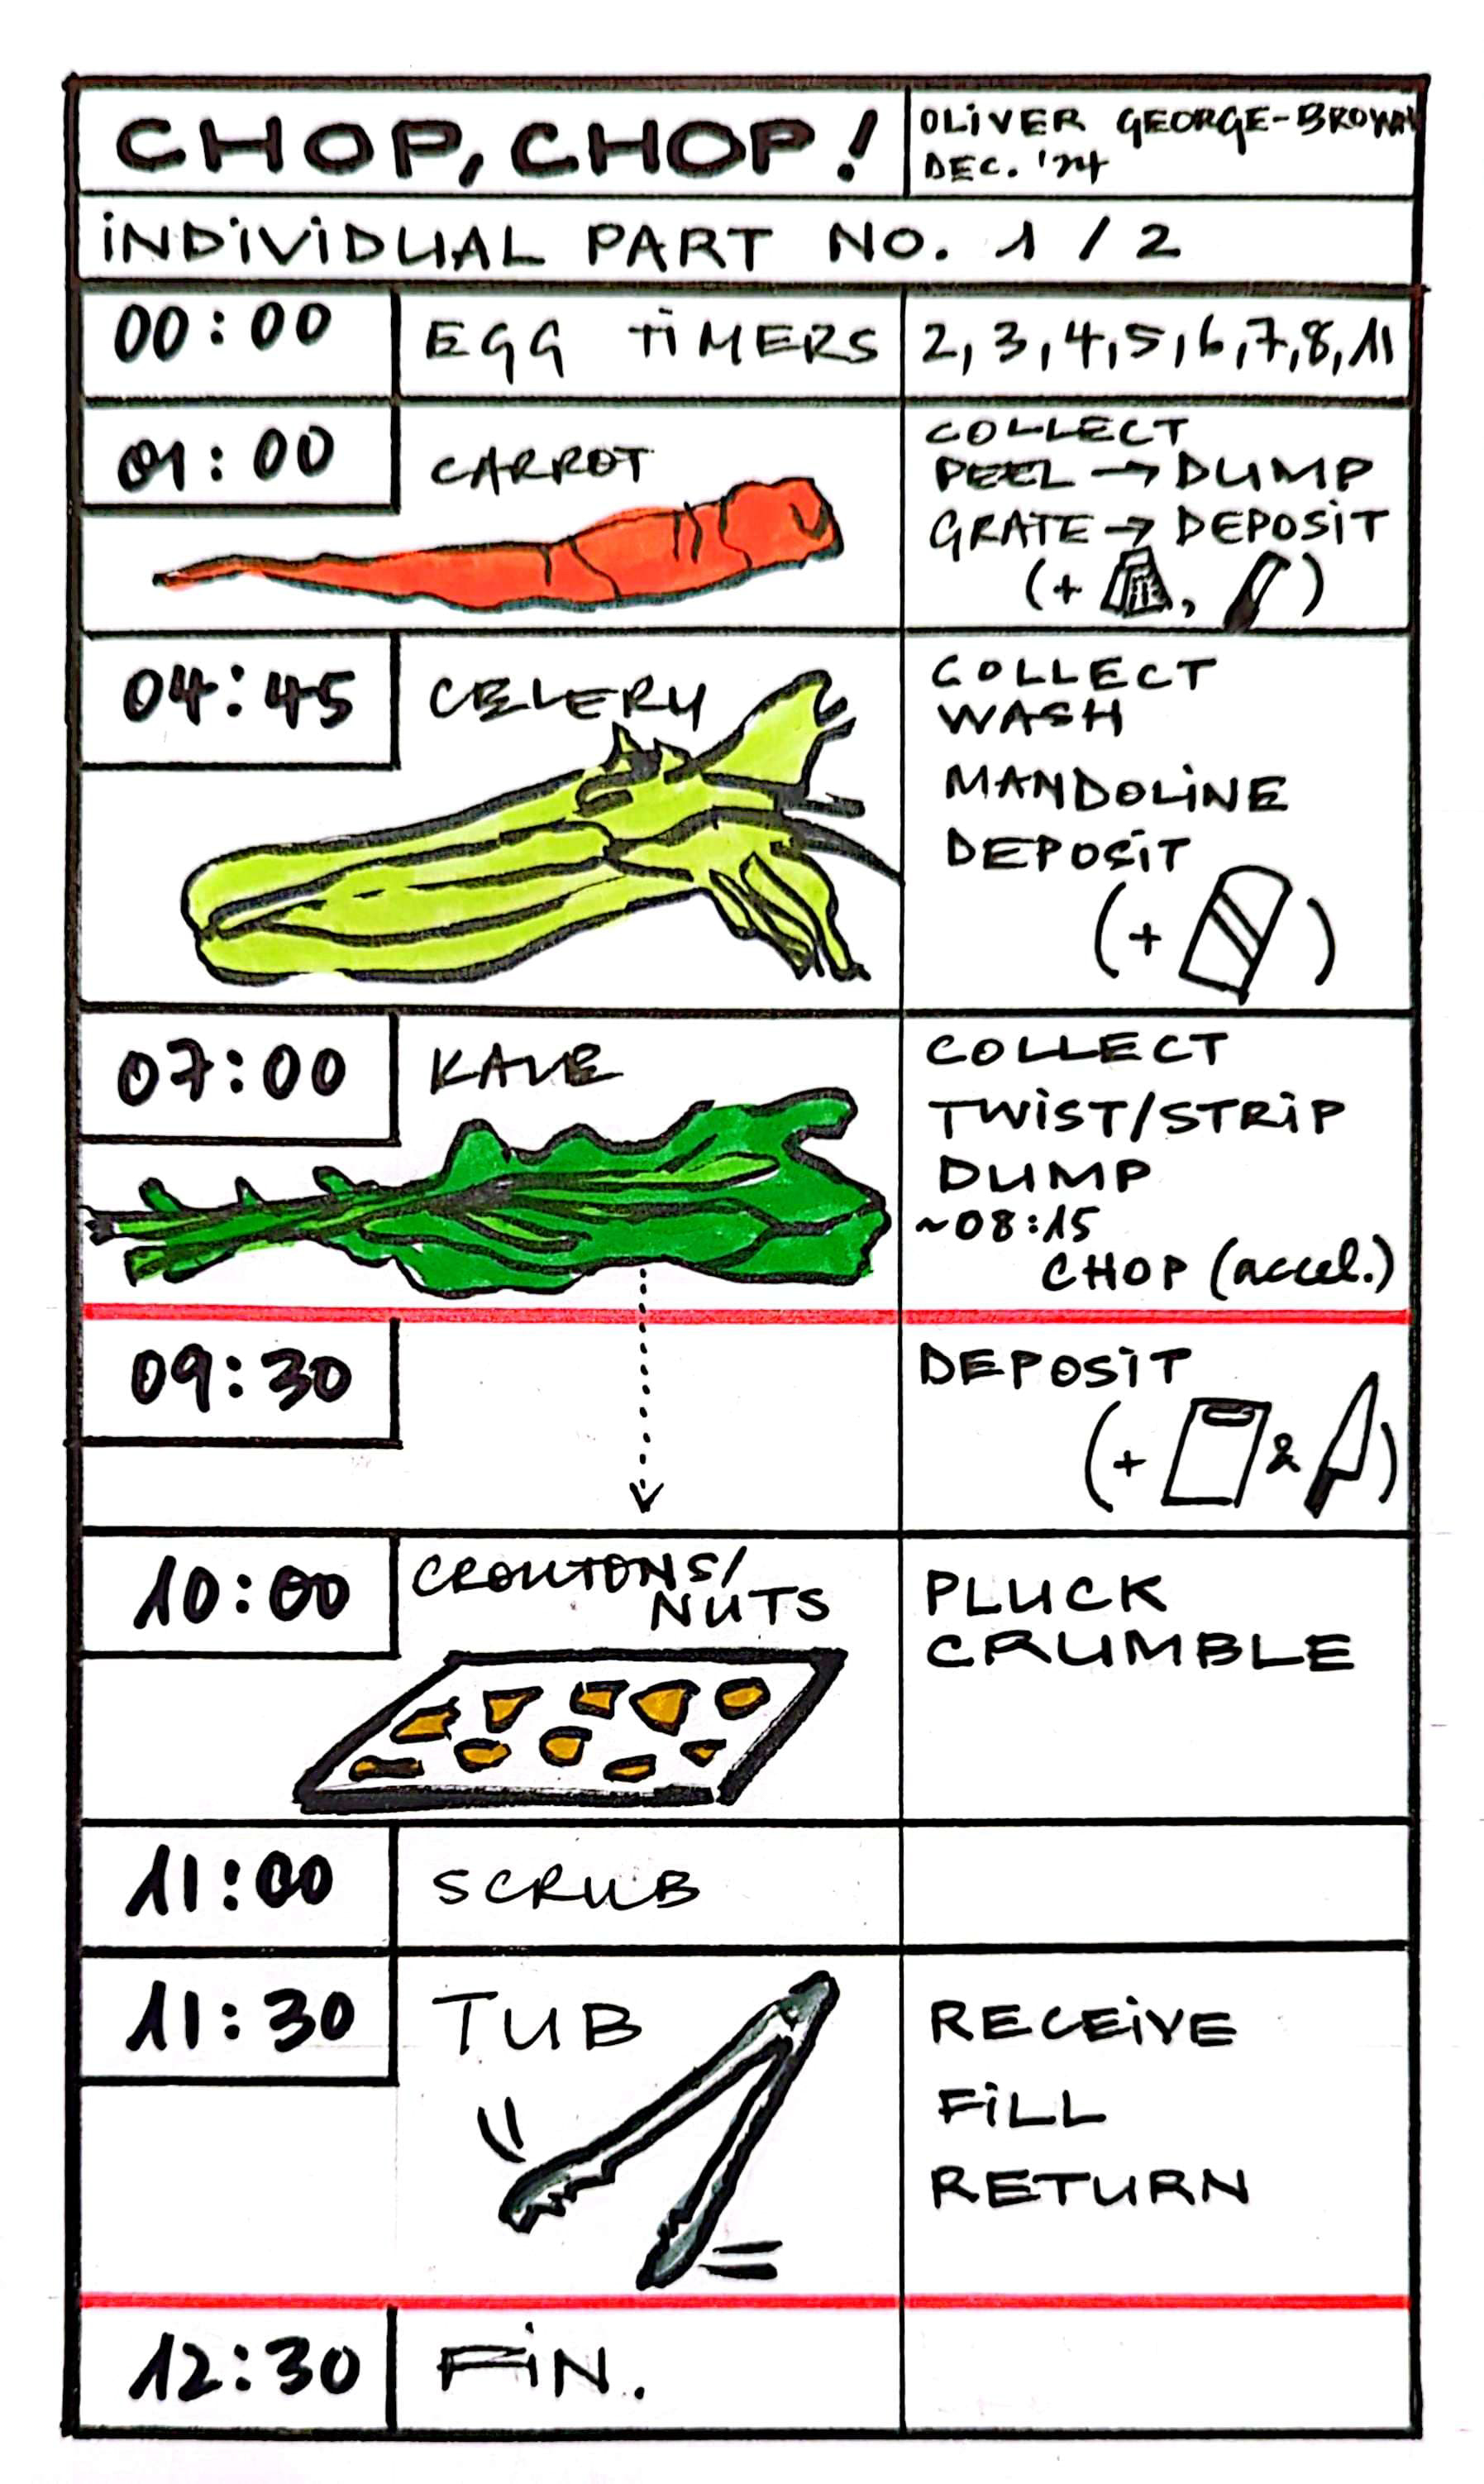 CHOP, CHOP!
OLIVER GEORGE-BROWN
DEC. '24
INDIVIDUAL PART NO. 1 / 2
00:00
EGG TIMERS
2, 3, 4, 5, 6, 7, 8, 11
01:00
CARROT
COLLECT
PEEL → DUMP
GRATE → DEPOSIT
(+ , )
04:45
CELERY
COLLECT
WASH
MANDOLINE
DEPOSIT
(+ )
07:00
KALE
COLLECT
TWIST/STRIP
DUMP
~08:15
CHOP (accel.)
09:30
DEPOSIT
(+ & )
10:00
CROUTONS/
NUTS
PLUCK
CRUMBLE
11:00
SCRUB
11:30
TUB
RECEIVE
FILL
RETURN
12:30
FIN.